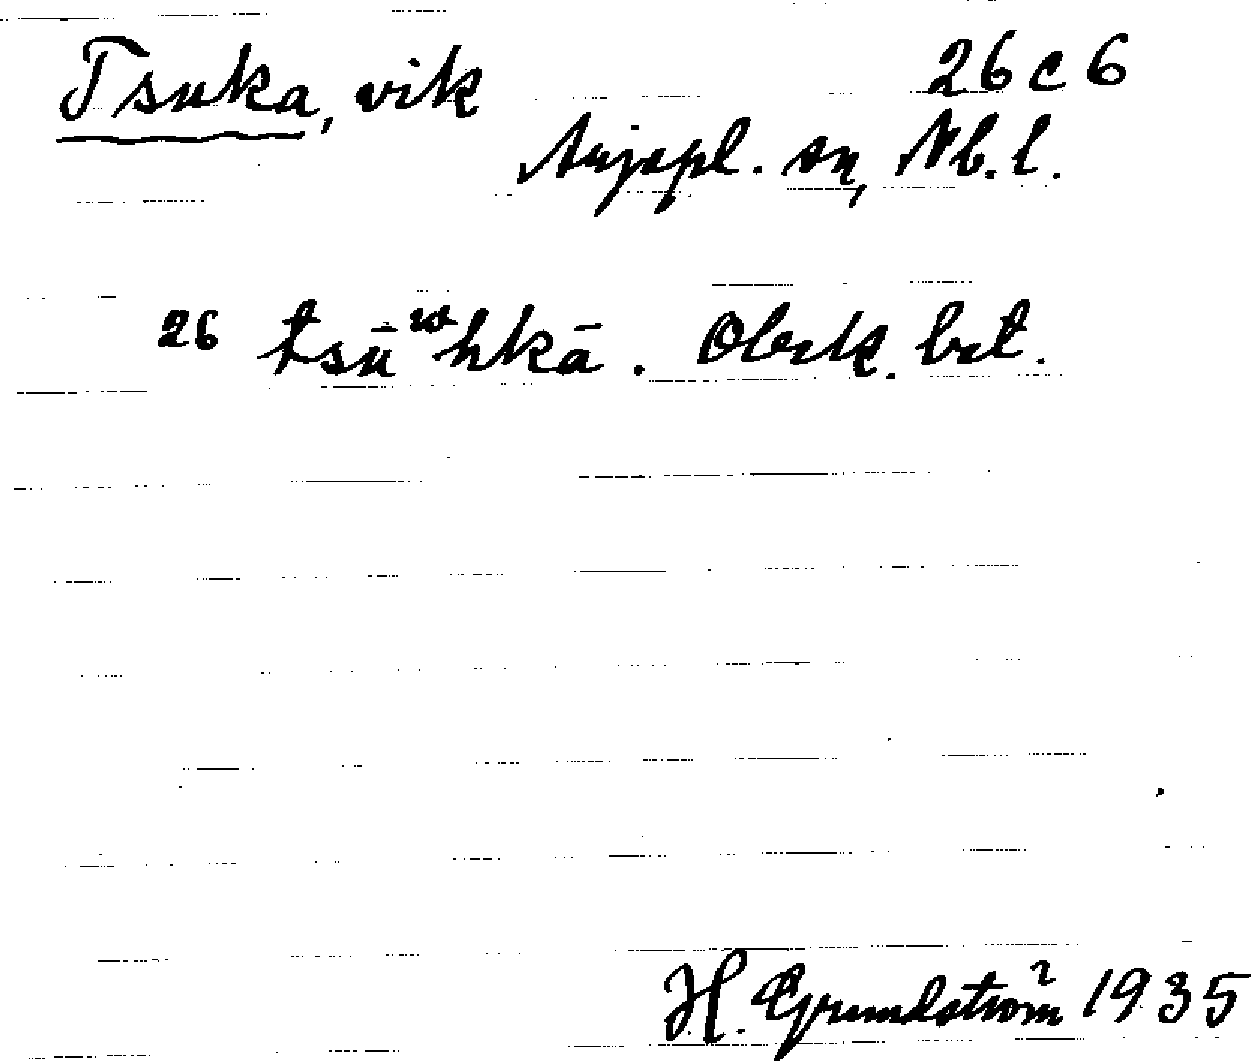 Tsuka, vik 26 c 6
Arjepl. sn, Nb. l.
26 tsūʷhkā. Obek. bet.
H. Grundström 1935